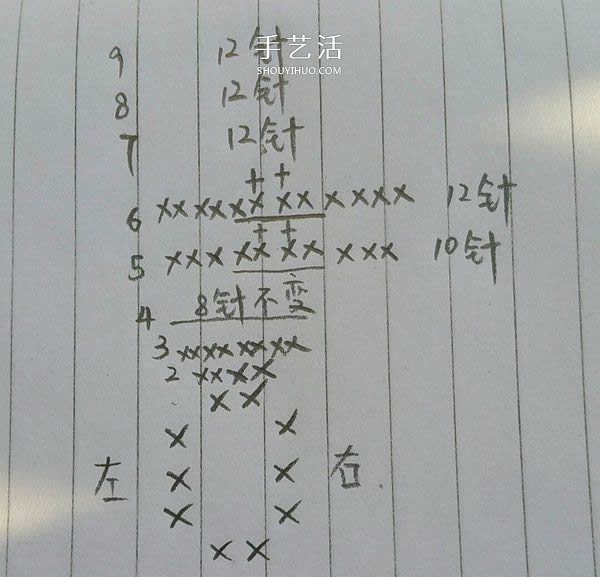 手艺活
SHOUYIHUO.COM
9 12针
8 12针
7 12针
++
6 ×× ××× × ×× ×××× 12针
++
5 ××× ×× ×× ××× 10针
4 8针不变
3 ×××× ××××
2 ××××
××
× ×
左 × × 右
× ×
××